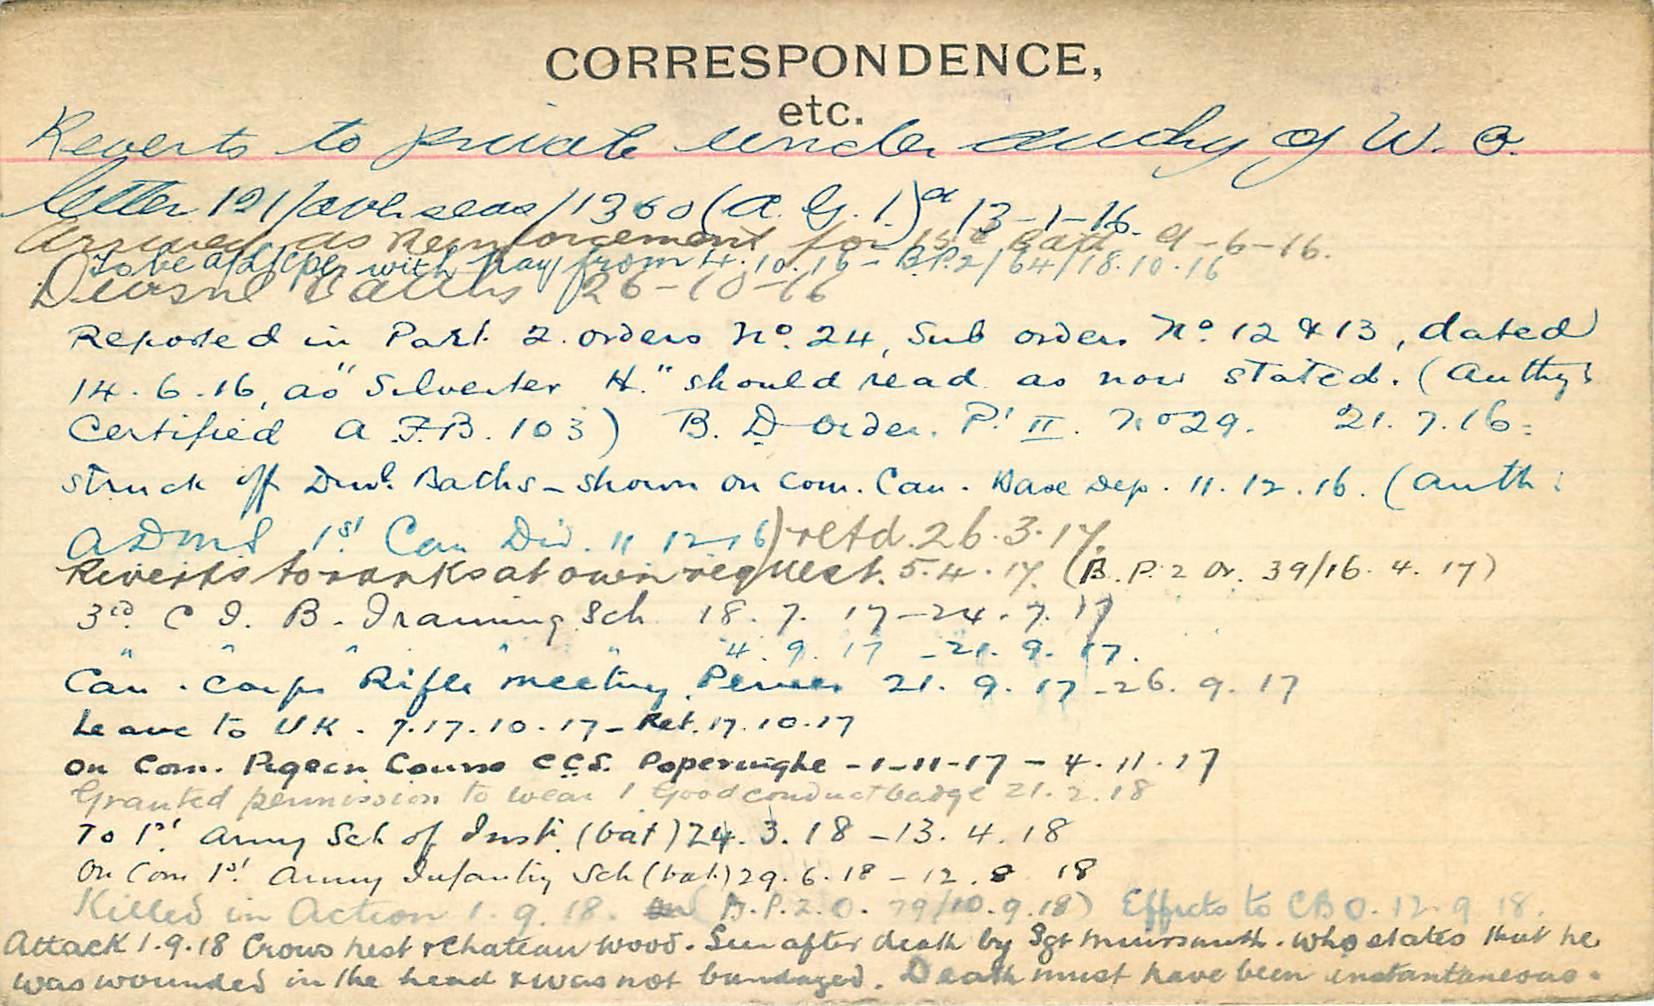 CORRESPONDENCE,
etc.
Reverts to private under authy of W. O.
letter 121/overseas/1360 (A. G. 1) d/ 13-1-16.
Arrived as Reinforcement for 15th Batt 9-6-16.
To be a/L/Cpl with pay from 4.10.16 - B.P.2/64/18.10.16
Divisnl Baths 26-10-16
Reported in Part 2. orders No. 24, Sub orders No 12 & 13, dated
14.6.16, as "Silverter H." should read as now stated. (Authy:
Certified A.F.B. 103) B. D Order. Pt II. No 29. 21.7.16.
Struck off Divl. Baths - shown on Com. Can. Base Dep. 11.12.16. (Auth:
ADMS 1st Can Div. 11 12 16) retd. 26.3.17.
Reverts to ranks at own request. 5.4.17. (B.P.2 Or. 39/16.4.17)
3rd C I. B. Training Sch 18.7.17-24.7.17
" " " " " 4.9.17 - 21.9.17.
Can. Corps Rifle meeting Pernes 21.9.17-26.9.17
Leave to UK. 7.17.10.17 - Ret. 17.10.17
On Com. Pigeon Course CCS. Poperinghe - 1-11-17 - 4.11.17
Granted permission to wear 1 Good conduct badge 21.2.18
To 1st Army Sch of Inst. (bat) 24.3.18 - 13.4.18
On Com 1st Army Infantry Sch (bat.) 29.6.18 - 12.8 18
Killed in Action 1.9.18. (B.P.2.O. 79/10.9.18) Effects to CBO. 12.9 18.
Attack 1.9.18 Crows nest & Chateau Wood. Seen after death by Sgt who states that he
was wounded in the head & was not bandaged. Death must have been instantaneous.